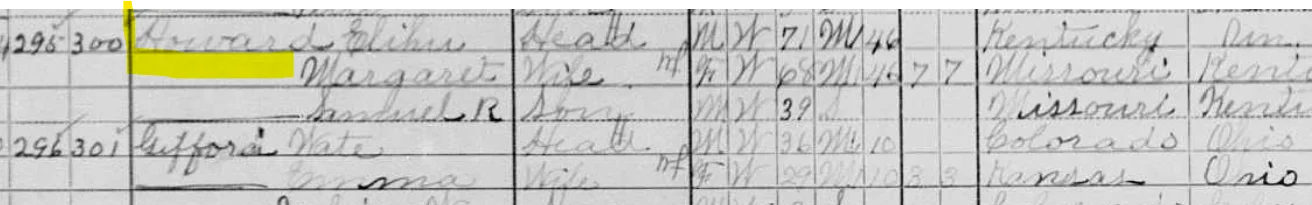 295 300 Howard Elihu Head M W 71 M1 46 Kentucky
Margaret Wife F W 68 M1 46 7 7 Missouri
Samuel R Son M W 39 S Missouri
296 301 Gifford Nate Head M W 36 M1 10 Colorado Ohio
Emma Wife F W 29 M1 10 3 3 Kansas Ohio